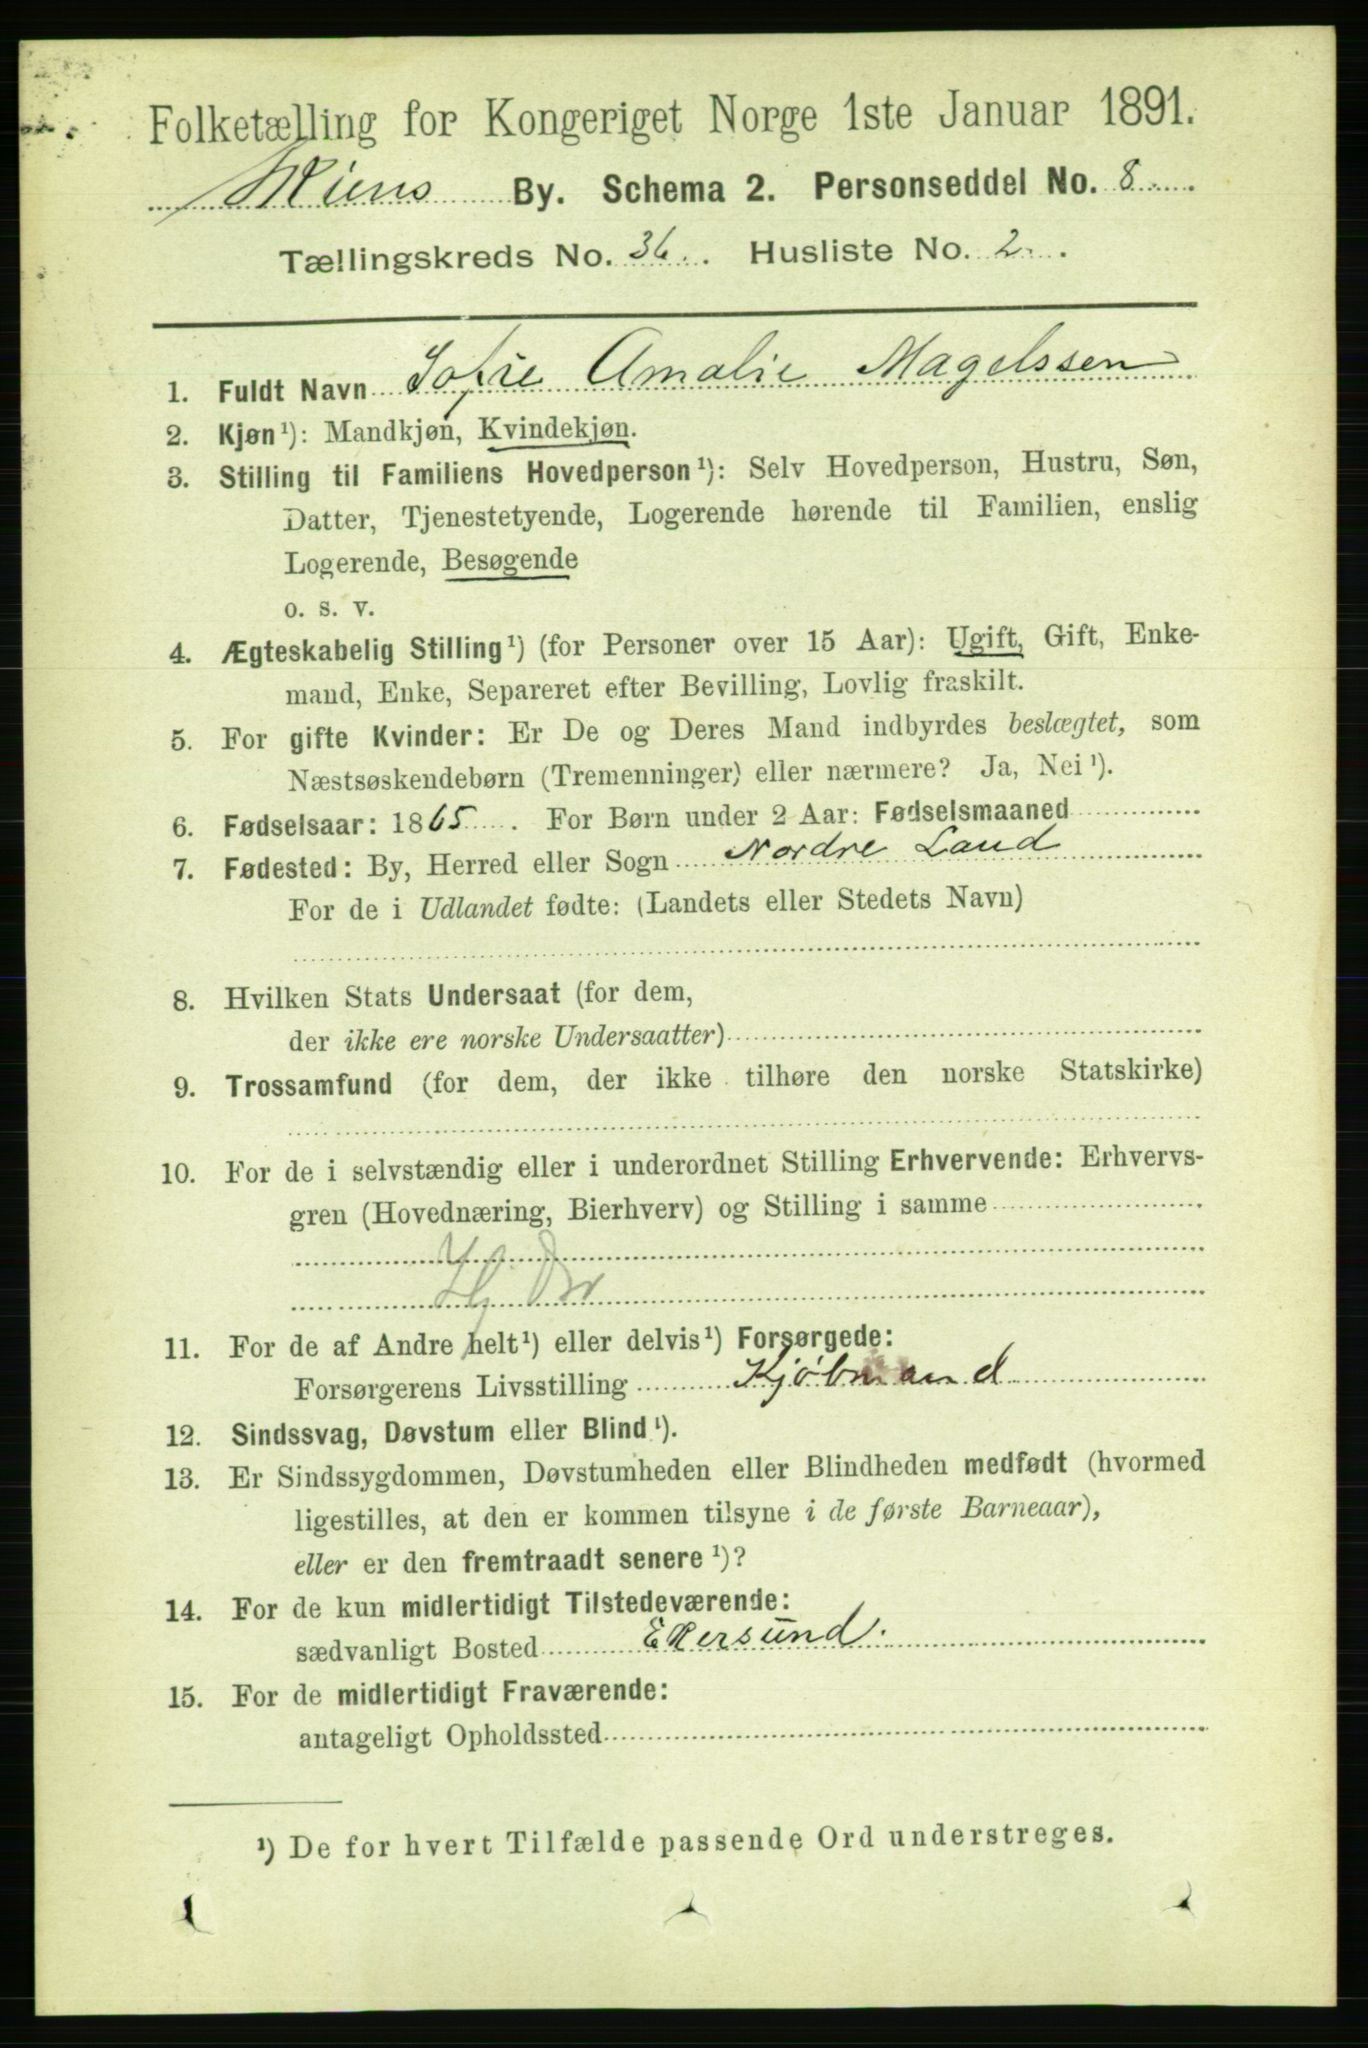 Folketælling for Kongeriget Norge 1ste Januar 1891.
Skiens By. Schema 2. Personseddel No. 8
Tællingskreds No. 36. Husliste No. 2.
1. Fuldt Navn Sofie Amalie Magelssen
2. Kjøn¹): Mandkjøn, Kvindekjøn.
3. Stilling til Familiens Hovedperson¹): Selv Hovedperson, Hustru, Søn,
Datter, Tjenestetyende, Logerende hørende til Familien, enslig
Logerende, Besøgende
o. s. v.
4. Ægteskabelig Stilling¹) (for Personer over 15 Aar): Ugift, Gift, Enke-
mand, Enke, Separeret efter Bevilling, Lovlig fraskilt.
5. For gifte Kvinder: Er De og Deres Mand indbyrdes beslægtet, som
Næstsøskendebørn (Tremenninger) eller nærmere? Ja, Nei¹).
6. Fødselsaar: 1865. For Børn under 2 Aar: Fødselsmaaned
7. Fødested: By, Herred eller Sogn Nordre Land
For de i Udlandet fødte: (Landets eller Stedets Navn)
8. Hvilken Stats Undersaat (for dem,
der ikke ere norske Undersaatter)
9. Trossamfund (for dem, der ikke tilhøre den norske Statskirke)
10. For de i selvstændig eller i underordnet Stilling Erhvervende: Erhvervs-
gren (Hovednæring, Bierhverv) og Stilling i samme
11. For de af Andre helt¹) eller delvis¹) Forsørgede:
Forsørgerens Livsstilling Kjøbmand
12. Sindssvag, Døvstum eller Blind¹).
13. Er Sindssygdommen, Døvstumheden eller Blindheden medfødt (hvormed
ligestilles, at den er kommen tilsyne i de første Barneaar),
eller er den fremtraadt senere¹)?
14. For de kun midlertidigt Tilstedeværende:
sædvanligt Bosted Ekersund.
15. For de midlertidigt Fraværende:
antageligt Opholdssted
¹) De for hvert Tilfælde passende Ord understreges.